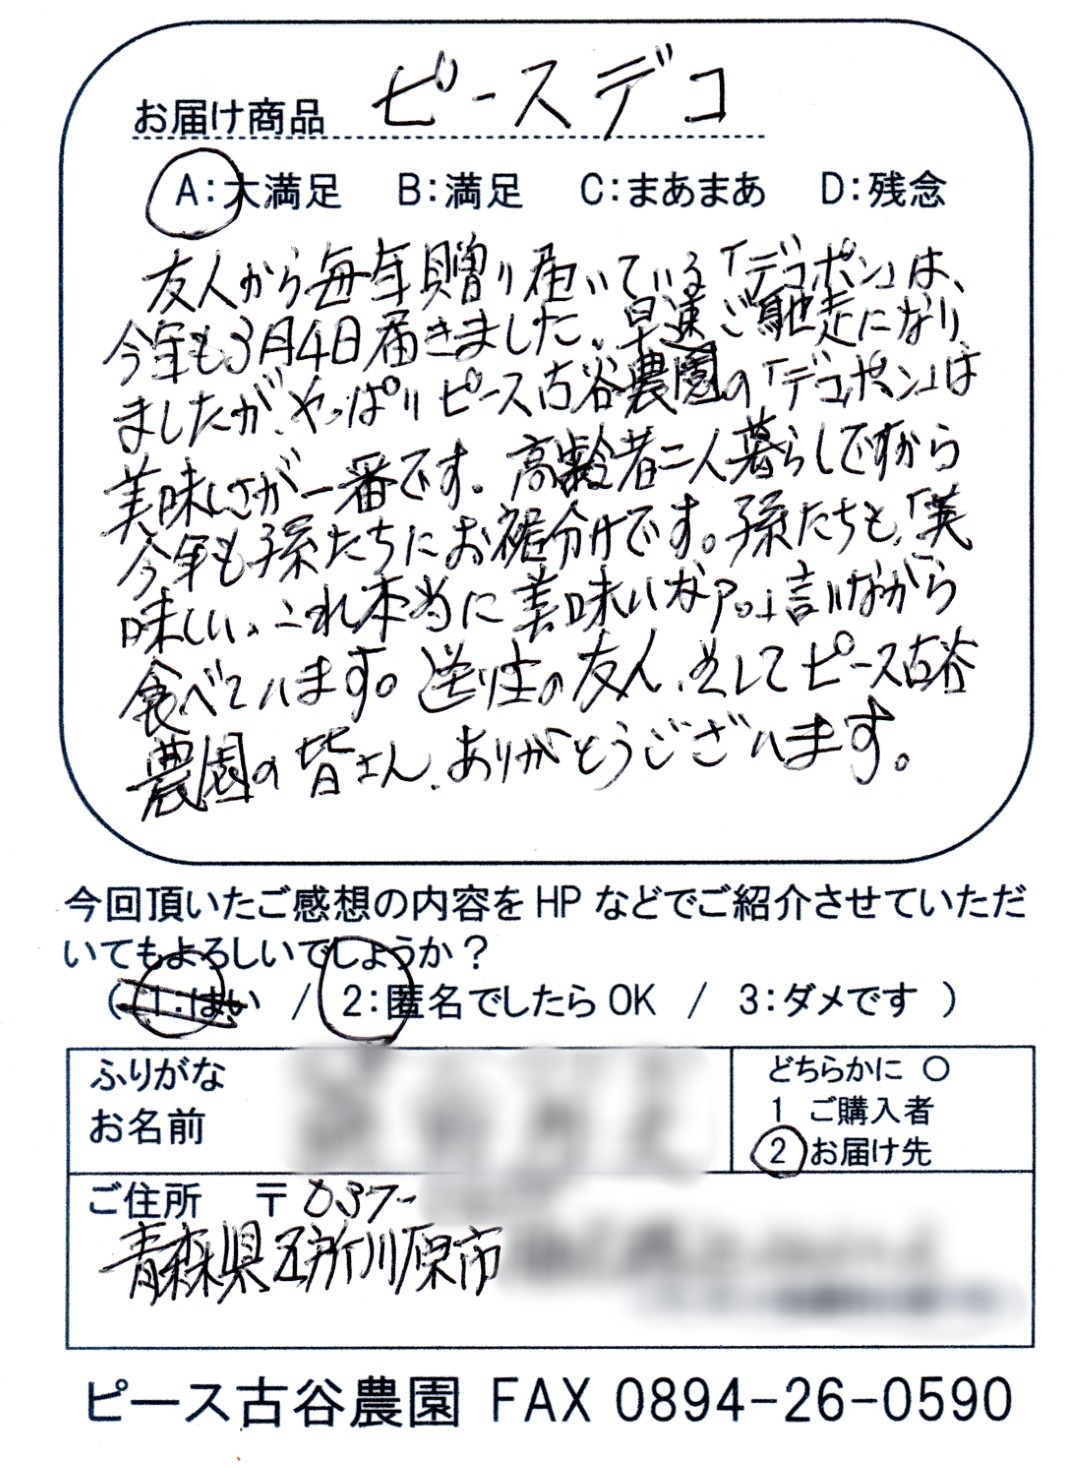 お届け商品 ピースデコ
A：大満足 B：満足 C：まあまあ D：残念
友人から毎年贈り届いている「デコポン」は、
今年も3月4日届きました。早速ご馳走になり
ましたが、やっぱりピース古谷農園の「デコポン」は
美味しさが一番です。高齢者二人暮らしですから
今年も孫たちにお裾分けです。孫たちも、「美
味しい。これ本当に美味いなァ。」言いながら
食べています。送り主の友人、そしてピース古谷
農園の皆さん、ありがとうございます。
今回頂いたご感想の内容をHPなどでご紹介させていただ
いてもよろしいでしょうか？
（ 1：はい / 2：匿名でしたらOK / 3：ダメです ）
ふりがな
お名前
どちらかに ○
1 ご購入者
2 お届け先
ご住所 〒037-
青森県五所川原市
ピース古谷農園 FAX 0894-26-0590